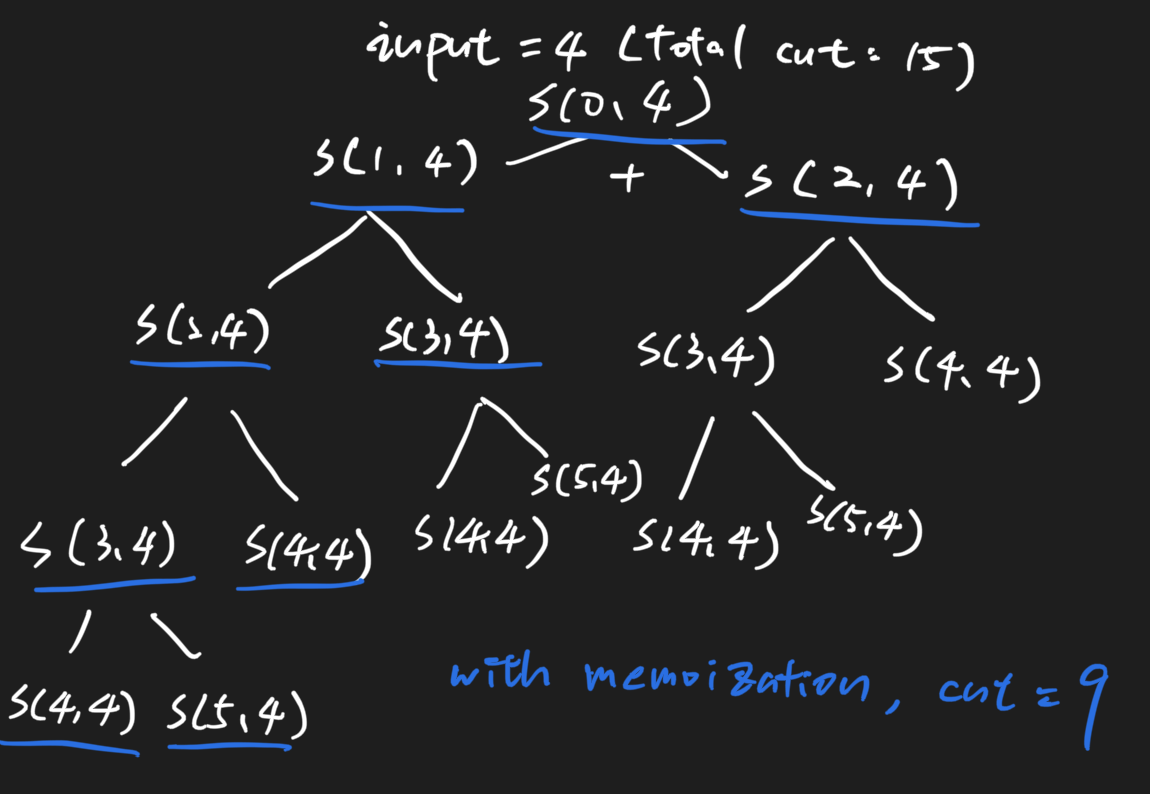 input = 4 (total cut: 15)
S(0, 4)
S(1, 4) + S(2, 4)
S(2,4) S(3,4) S(3,4) S(4,4)
S(5,4)
S(3,4) S(4,4) S(4,4) S(4,4) S(5,4)
S(4,4) S(5,4)
with memoization, cut = 9